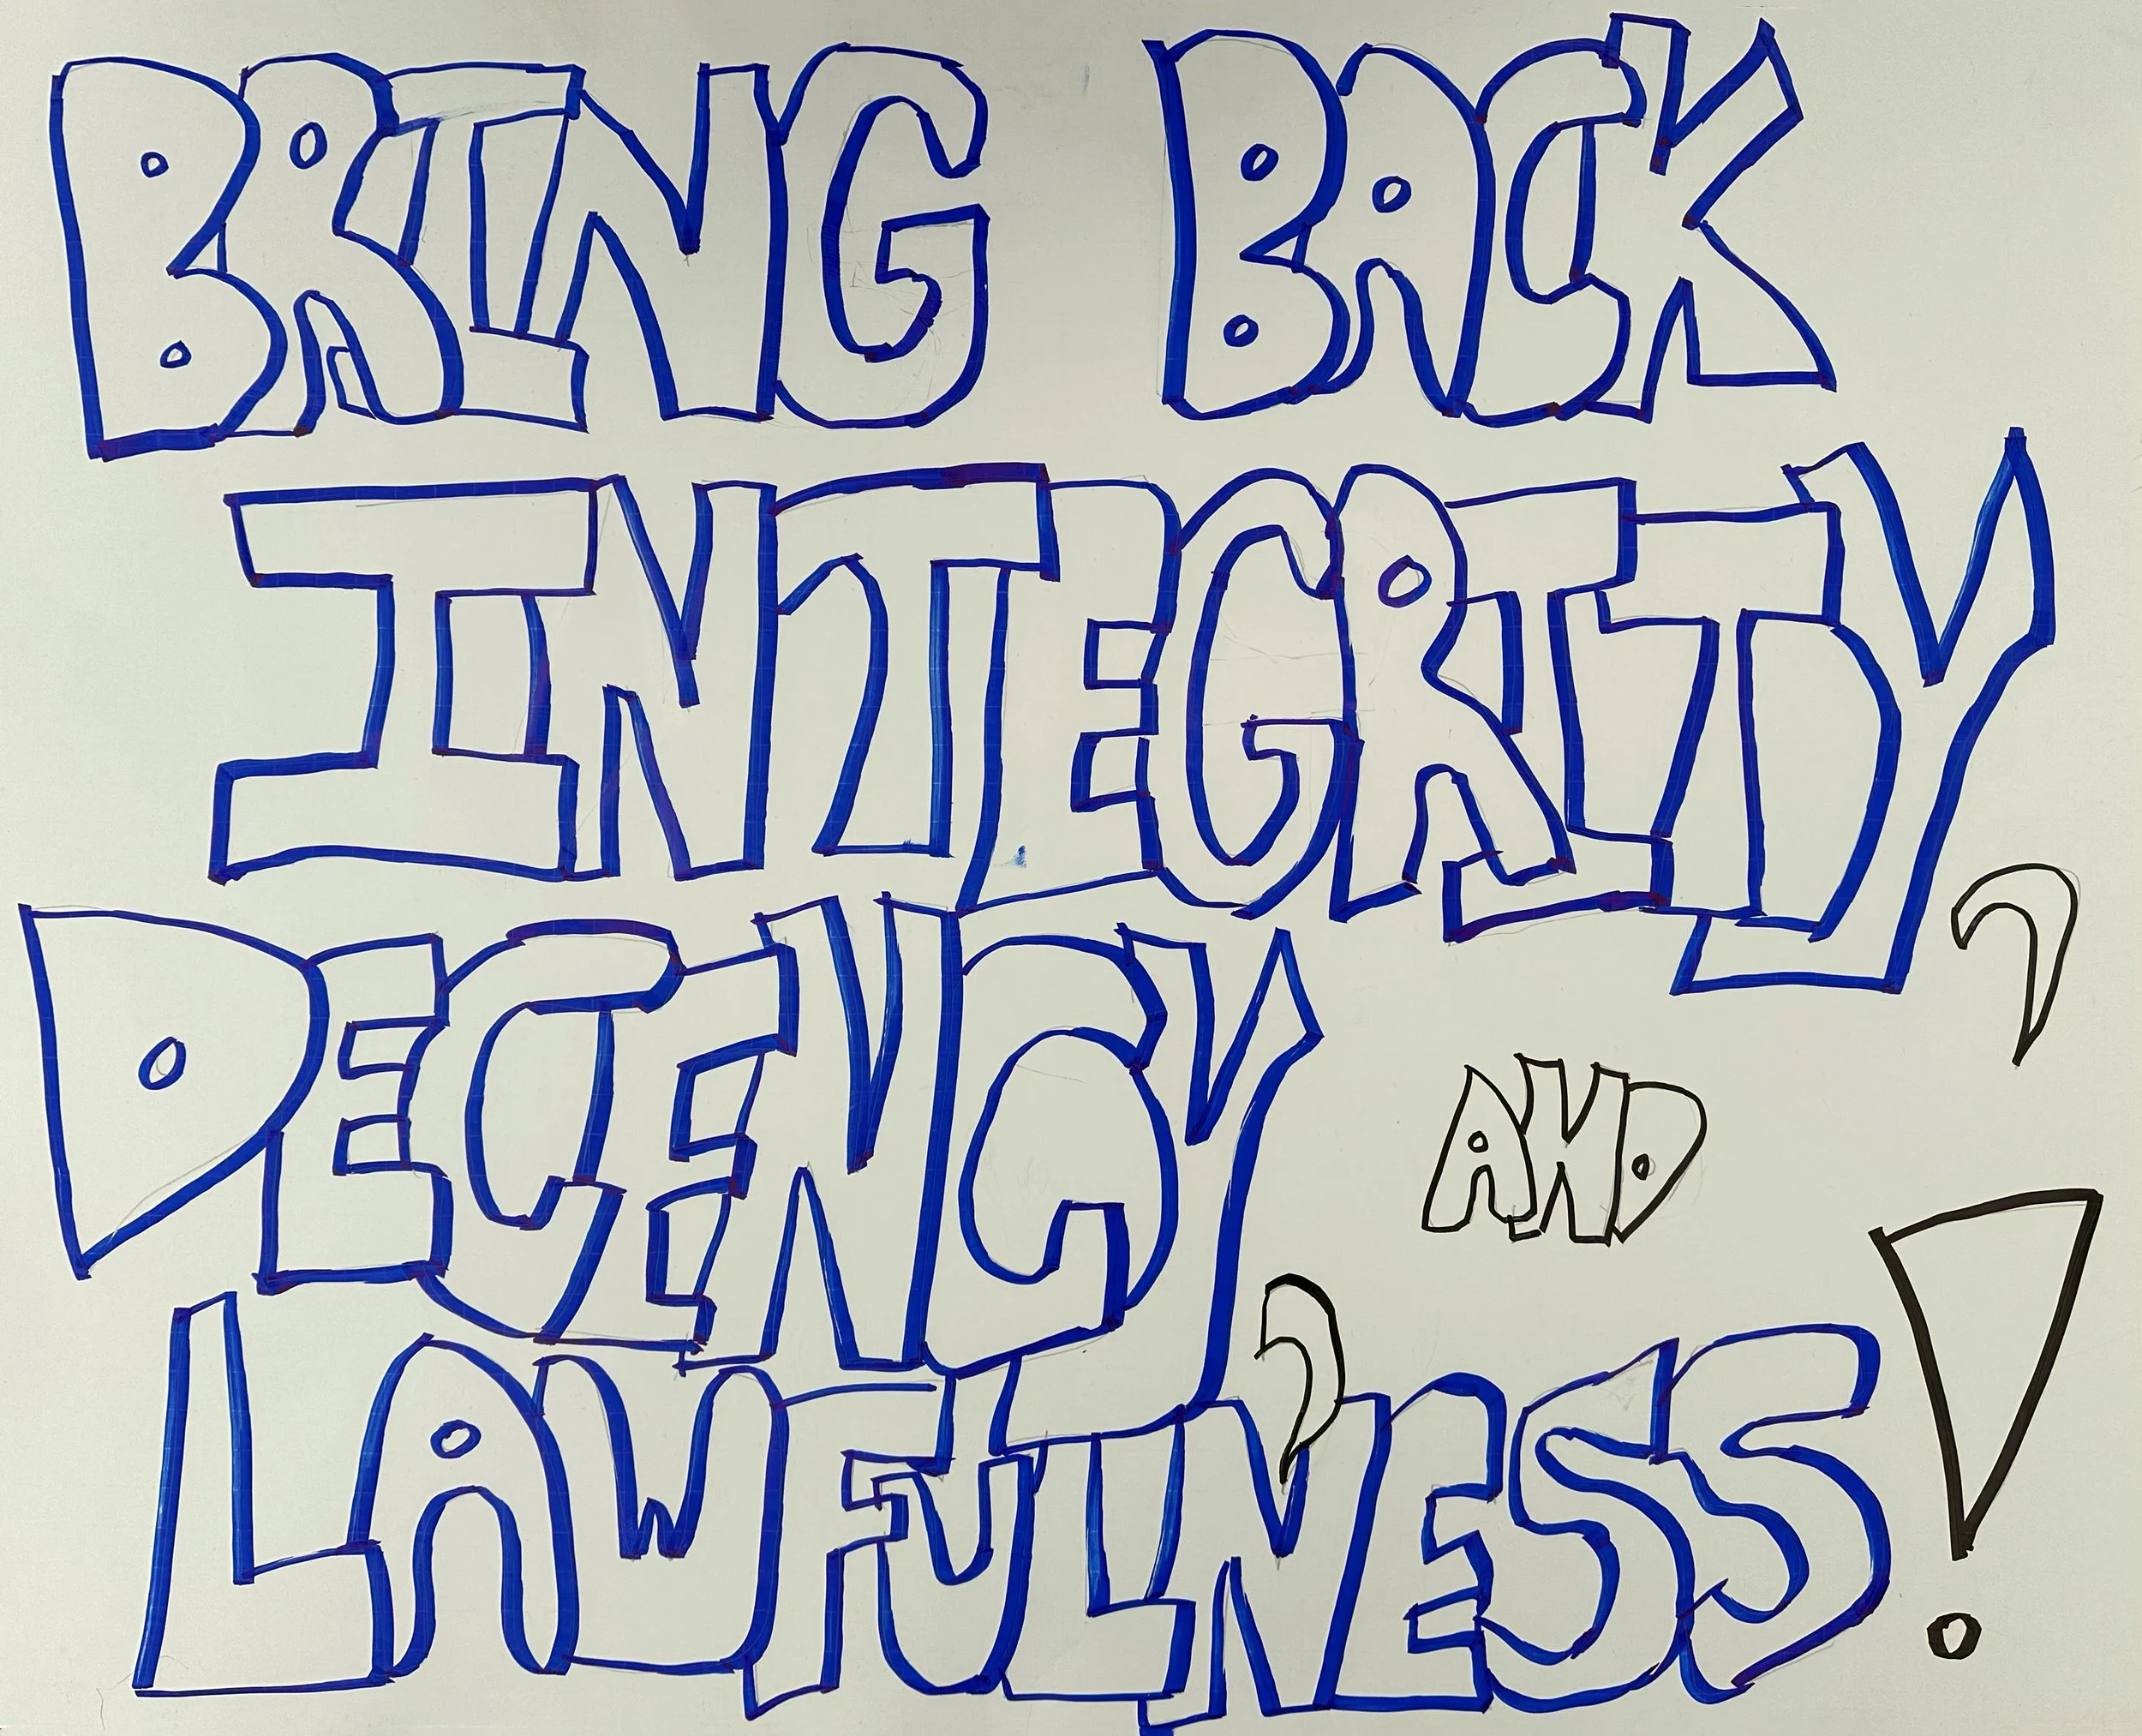 BRING BACK
INTEGRITY,
DECENCY, AND
LAWFULNESS!